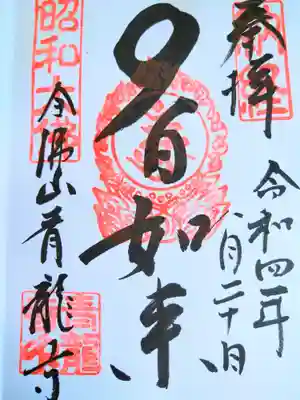 奉拝
令和四年
八月二十日
大日如来
昭和大佛
全佛山青龍寺